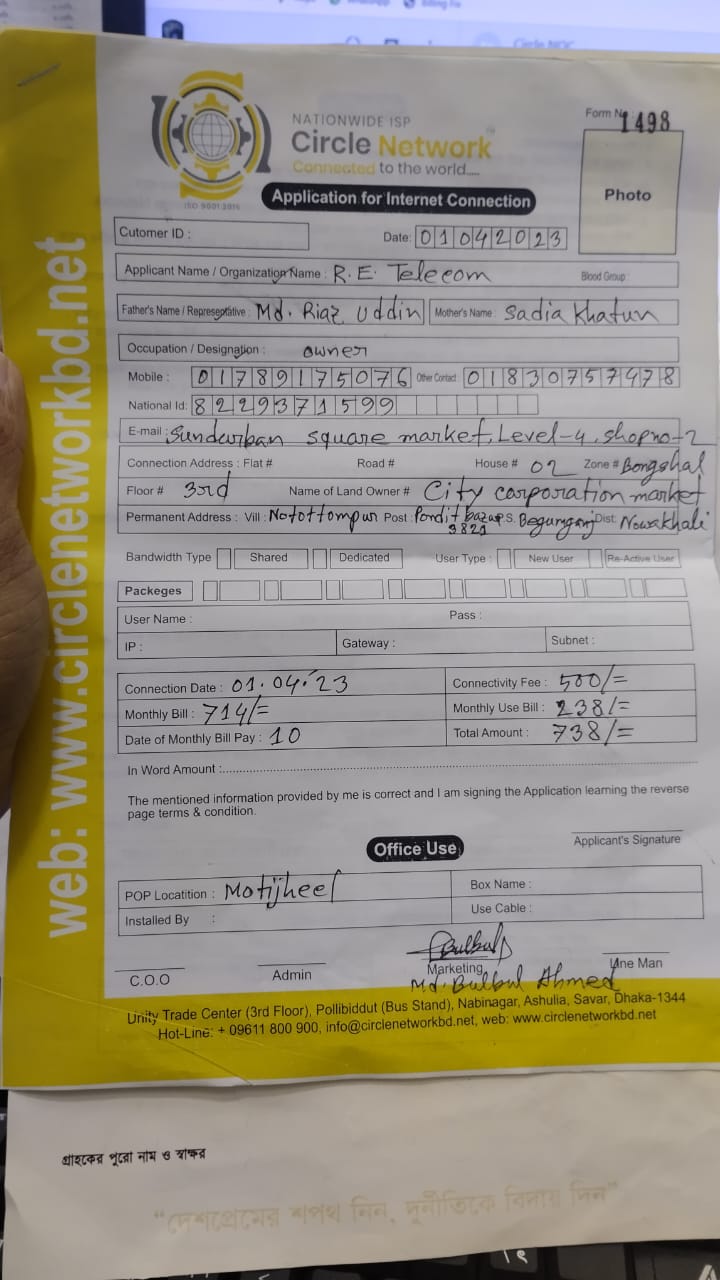 Circle NOC
NATIONWIDE ISP
Circle Network
Connected to the world.....
ISO 9001:2015
Form No 1498
Photo
Application for Internet Connection
Cutomer ID :
Date: 01042023
Applicant Name / Organization Name : R.E. Telecom Blood Group :
Father's Name / Represetitive : Md. Riaz Uddin Mother's Name : Sadia Khatun
Occupation / Designation : owner
Mobile : 01789175076 Other Contact : 01830757478
National Id: 8229371599
E-mail : Sundurban square market, Level-4, shop no-2
Connection Address : Flat # Road # House # 02 Zone # Bongshal
Floor # 3rd Name of Land Owner # City corporation market
Permanent Address : Vill : Notottompur Post : Pondit bazar 3821 P.S. Begumganj Dist: Nowakhali
Bandwidth Type Shared Dedicated User Type : New User Re-Active User
Packeges
User Name : Pass :
IP : Gateway : Subnet :
Connection Date : 01.04.23 Connectivity Fee : 500/=
Monthly Bill : 714/= Monthly Use Bill : 238/=
Date of Monthly Bill Pay : 10 Total Amount : 738/=
In Word Amount :
The mentioned information provided by me is correct and I am signing the Application learning the reverse
page terms & condition.
Applicant's Signature
Office Use
POP Locatition : Motijheel Box Name :
Installed By : Use Cable :
Bulbul
C.O.O Admin Marketing Line Man
Md. Bulbul Ahmed
Unity Trade Center (3rd Floor), Pollibiddut (Bus Stand), Nabinagar, Ashulia, Savar, Dhaka-1344
Hot-Line: + 09611 800 900, info@circlenetworkbd.net, web: www.circlenetworkbd.net
web: www.circlenetworkbd.net
গ্রাহকের পুরো নাম ও স্বাক্ষর
“দেশপ্রেমের শপথ নিন, দুর্নীতিকে বিদায় দিন”